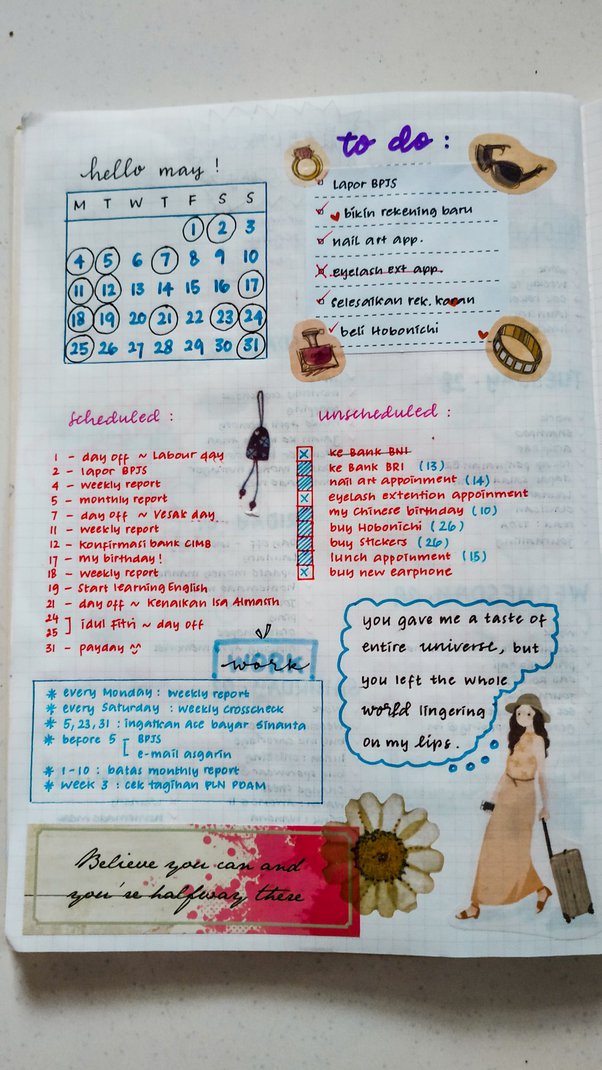 hello may !
M T W T F S S
1 2 3
4 5 6 7 8 9 10
11 12 13 14 15 16 17
18 19 20 21 22 23 24
25 26 27 28 29 30 31
to do :
Lapor BPJS
bikin rekening baru
nail art app.
eyelash ext app.
selesaikan rek. koran
beli Hobonichi
scheduled :
1 - day off ~ Labour day
2 - lapor BPJS
4 - weekly report
5 - monthly report
7 - day off ~ Vesak day
11 - weekly report
12 - Konfirmasi bank CIMB
17 - my birthday !
18 - weekly report
19 - Start learning English
21 - day off ~ Kenaikan Isa Almasih
24
25 ] idul Fitri ~ day off
31 - payday
unscheduled :
ke Bank BNI
ke Bank BRI (13)
nail art appoinment (14)
eyelash extention appoinment
my Chinese birthday (10)
buy Hobonichi (26)
buy stickers (26)
lunch appoinment (15)
buy new earphone
work
* every Monday : weekly report
* every Saturday : weekly crosscheck
* 5, 23, 31 : ingatkan Ace bayar Sinanta
* before 5 [ BPJS
e-mail asgarin
* 1-10 : batas monthly report
* week 3 : cek tagihan PLN PDAM
you gave me a taste of
entire universe, but
you left the whole
world lingering
on my lips.
Believe you can and
you're halfway there